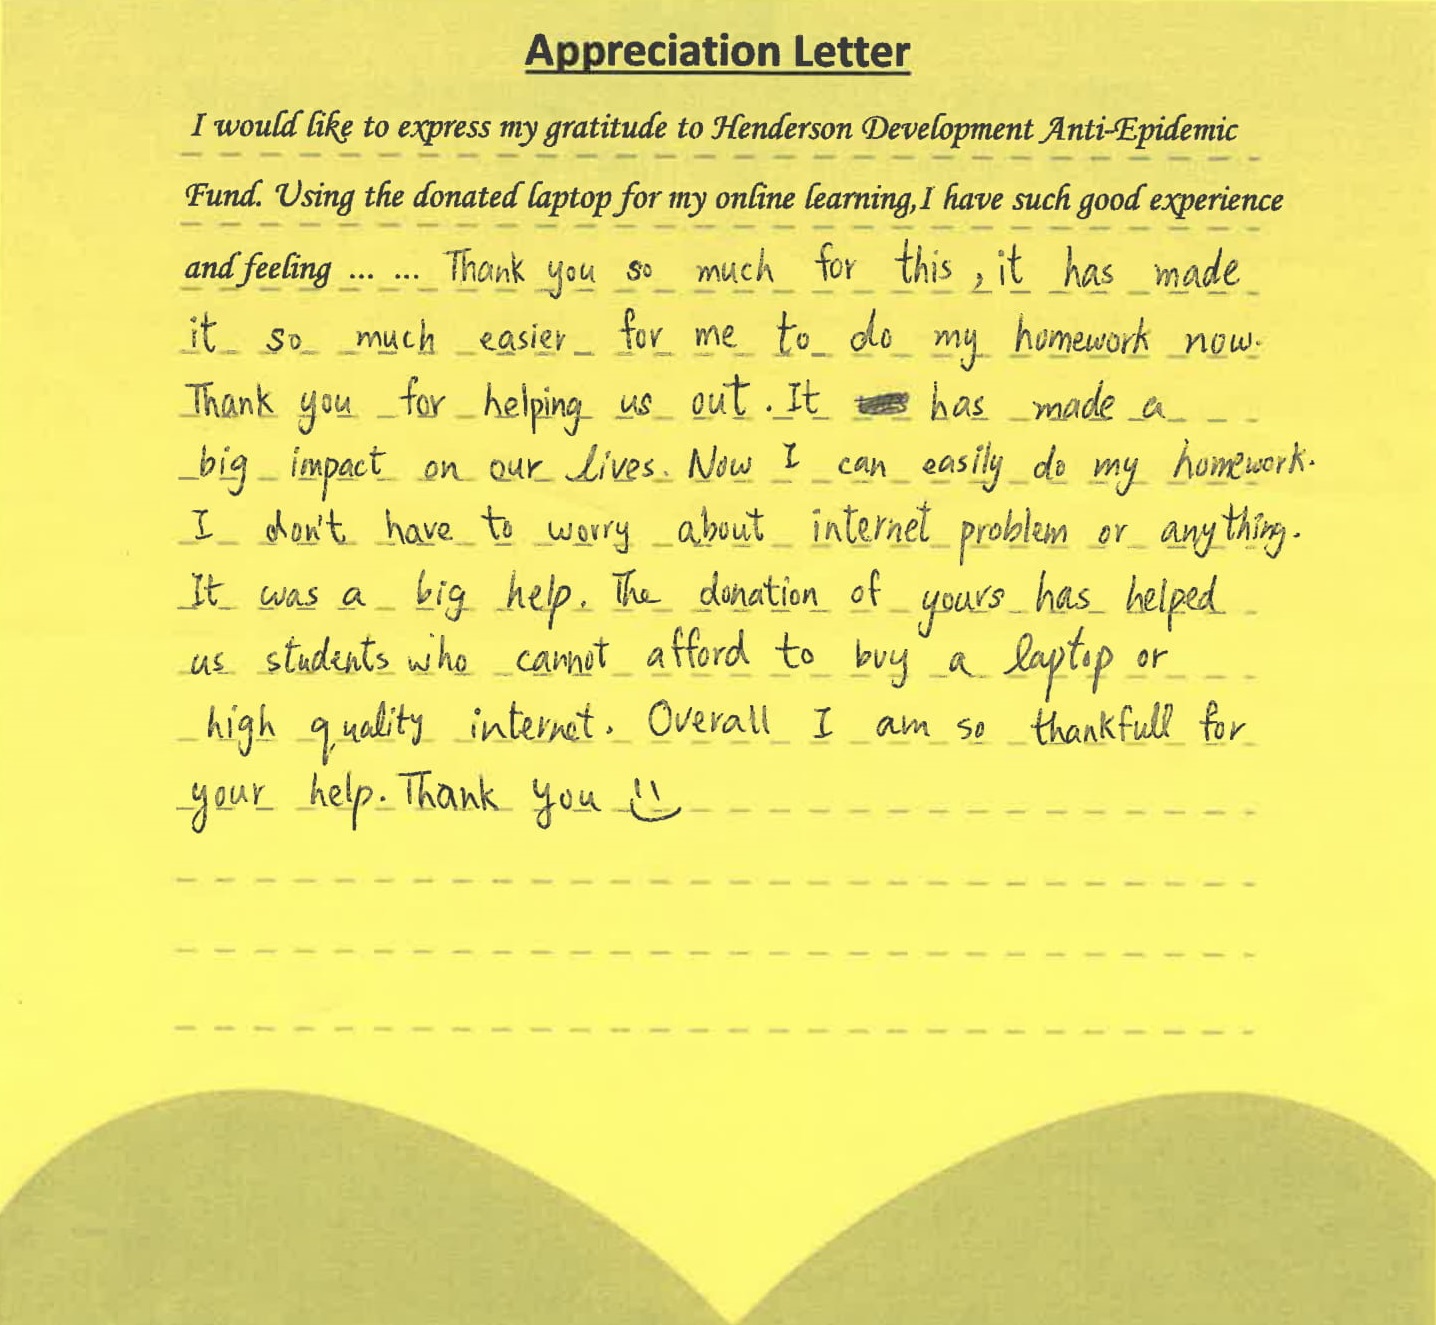 Appreciation Letter
I would like to express my gratitude to Henderson Development Anti-Epidemic
Fund. Using the donated laptop for my online learning, I have such good experience
and feeling ... ... Thank you so much for this, it has made
it so much easier for me to do my homework now.
Thank you for helping us out. It has made a
big impact on our lives. Now I can easily do my homework.
I don't have to worry about internet problem or anything.
It was a big help. The donation of yours has helped
us students who cannot afford to buy a laptop or
high quality internet. Overall I am so thankfull for
your help. Thank you